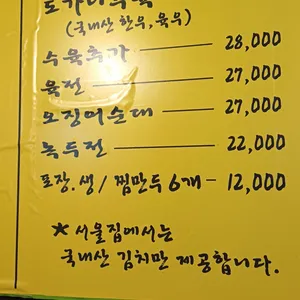 도가니수육
(국내산 한우, 육우)
수육추가 28,000
육전 27,000
오징어순대 27,000
녹두전 22,000
포장. 생/찜만두 6개 - 12,000
★서울집에서는
국내산 김치만 제공합니다.